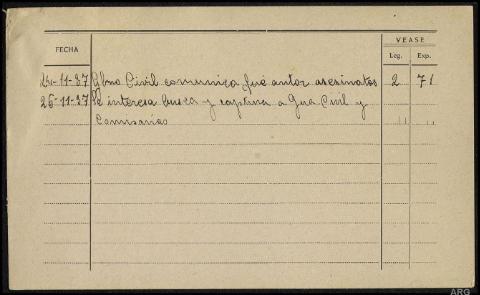 VEASE
FECHA
Leg. Exp.
24-11-37 Gbno Civil comunica fué autor asesinatos 2 71
26-11-37 Se interesa busca y captura a Gua Civil y
Comisarias " "
ARG